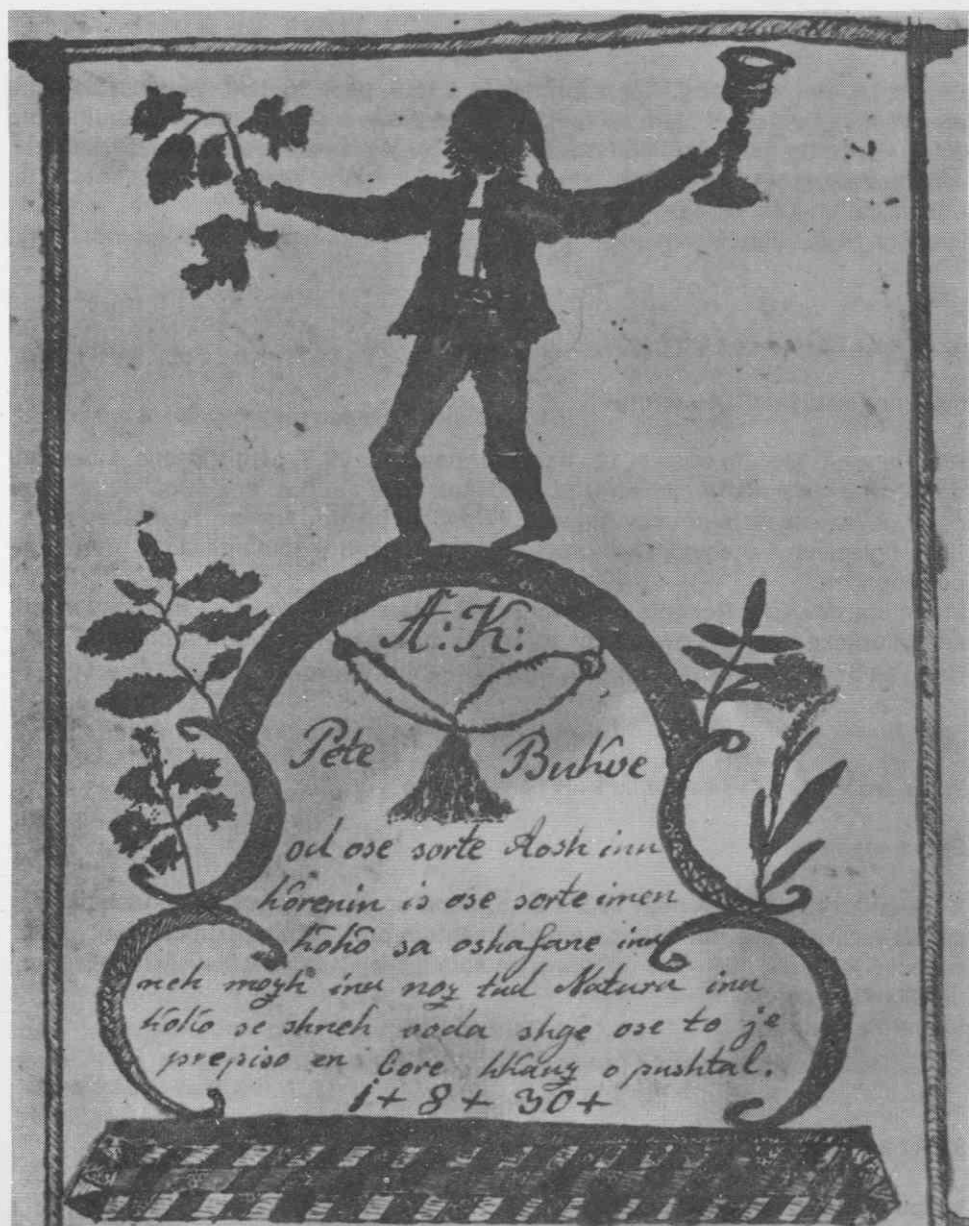 A: K:
Pete Bukve
od ose sorte Rosh inu
korenin is ose sorte imen
koko sa oshafane inu
neh mozh inu noz tud Natura inu
koko se shneh ooda shge ose to je
prepiso en Bore kkauz o pushtal.
1 + 8 + 30 +